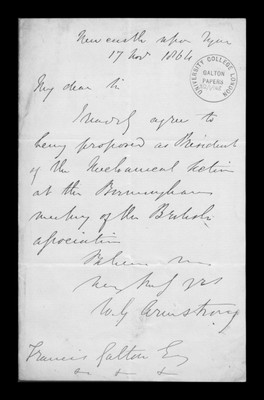 Newcastle upon Tyne
17 Nov 1864
UNIVERSITY COLLEGE LONDON
GALTON
PAPERS
My dear Sir
I agree to
being proposed as President
of the Mechanical Section
at the Birmingham
meeting of the British
Association
Believe me
W G Armstrong
Francis Galton Esq